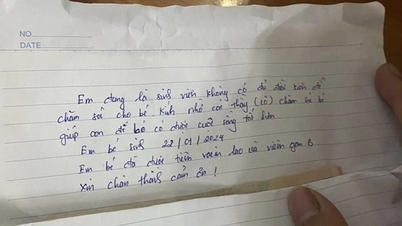 NO
DATE
Em đang là sinh viên không có đủ điều kiện để
chăm sóc cho bé. Kính nhờ các thầy (cô) chăm bé
giúp con để bé có được cuộc sống tốt hơn
Em bé sinh 22/01/2024
Em bé đã được tiêm vacxin lao và viêm gan B
Xin chân thành cảm ơn!